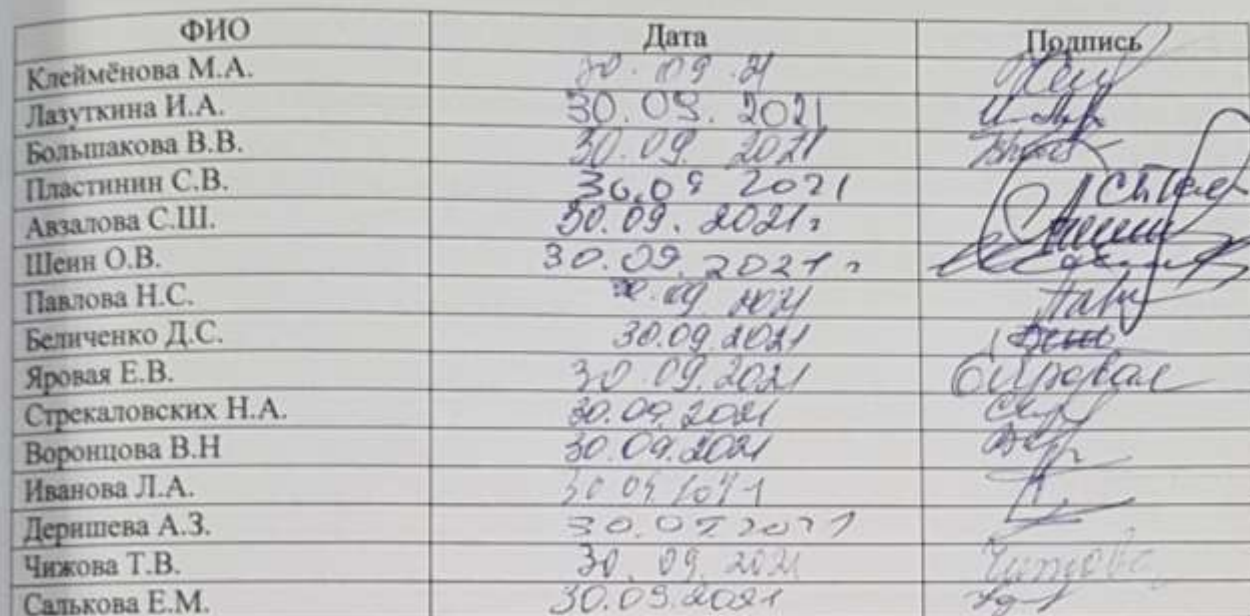 ФИО Дата Подпись
Клеймёнова М.А. 30.09.21
Лазуткина И.А. 30.09.2021
Большакова В.В. 30.09.2021
Пластинин С.В. 30.09 2021
Авзалова С.Ш. 30.09.2021г
Шеин О.В. 30.09.2021г
Павлова Н.С. 30.09 2021
Беличенко Д.С. 30.09.2021
Яровая Е.В. 30.09.2021 ЕЯровая
Стрекаловских Н.А. 30.09.2021
Воронцова В.Н 30.09.2021
Иванова Л.А. 30 09 2021
Деришева А.З. 30.09 2021
Чижова Т.В. 30.09.2021 Чижова
Салькова Е.М. 30.09.2021